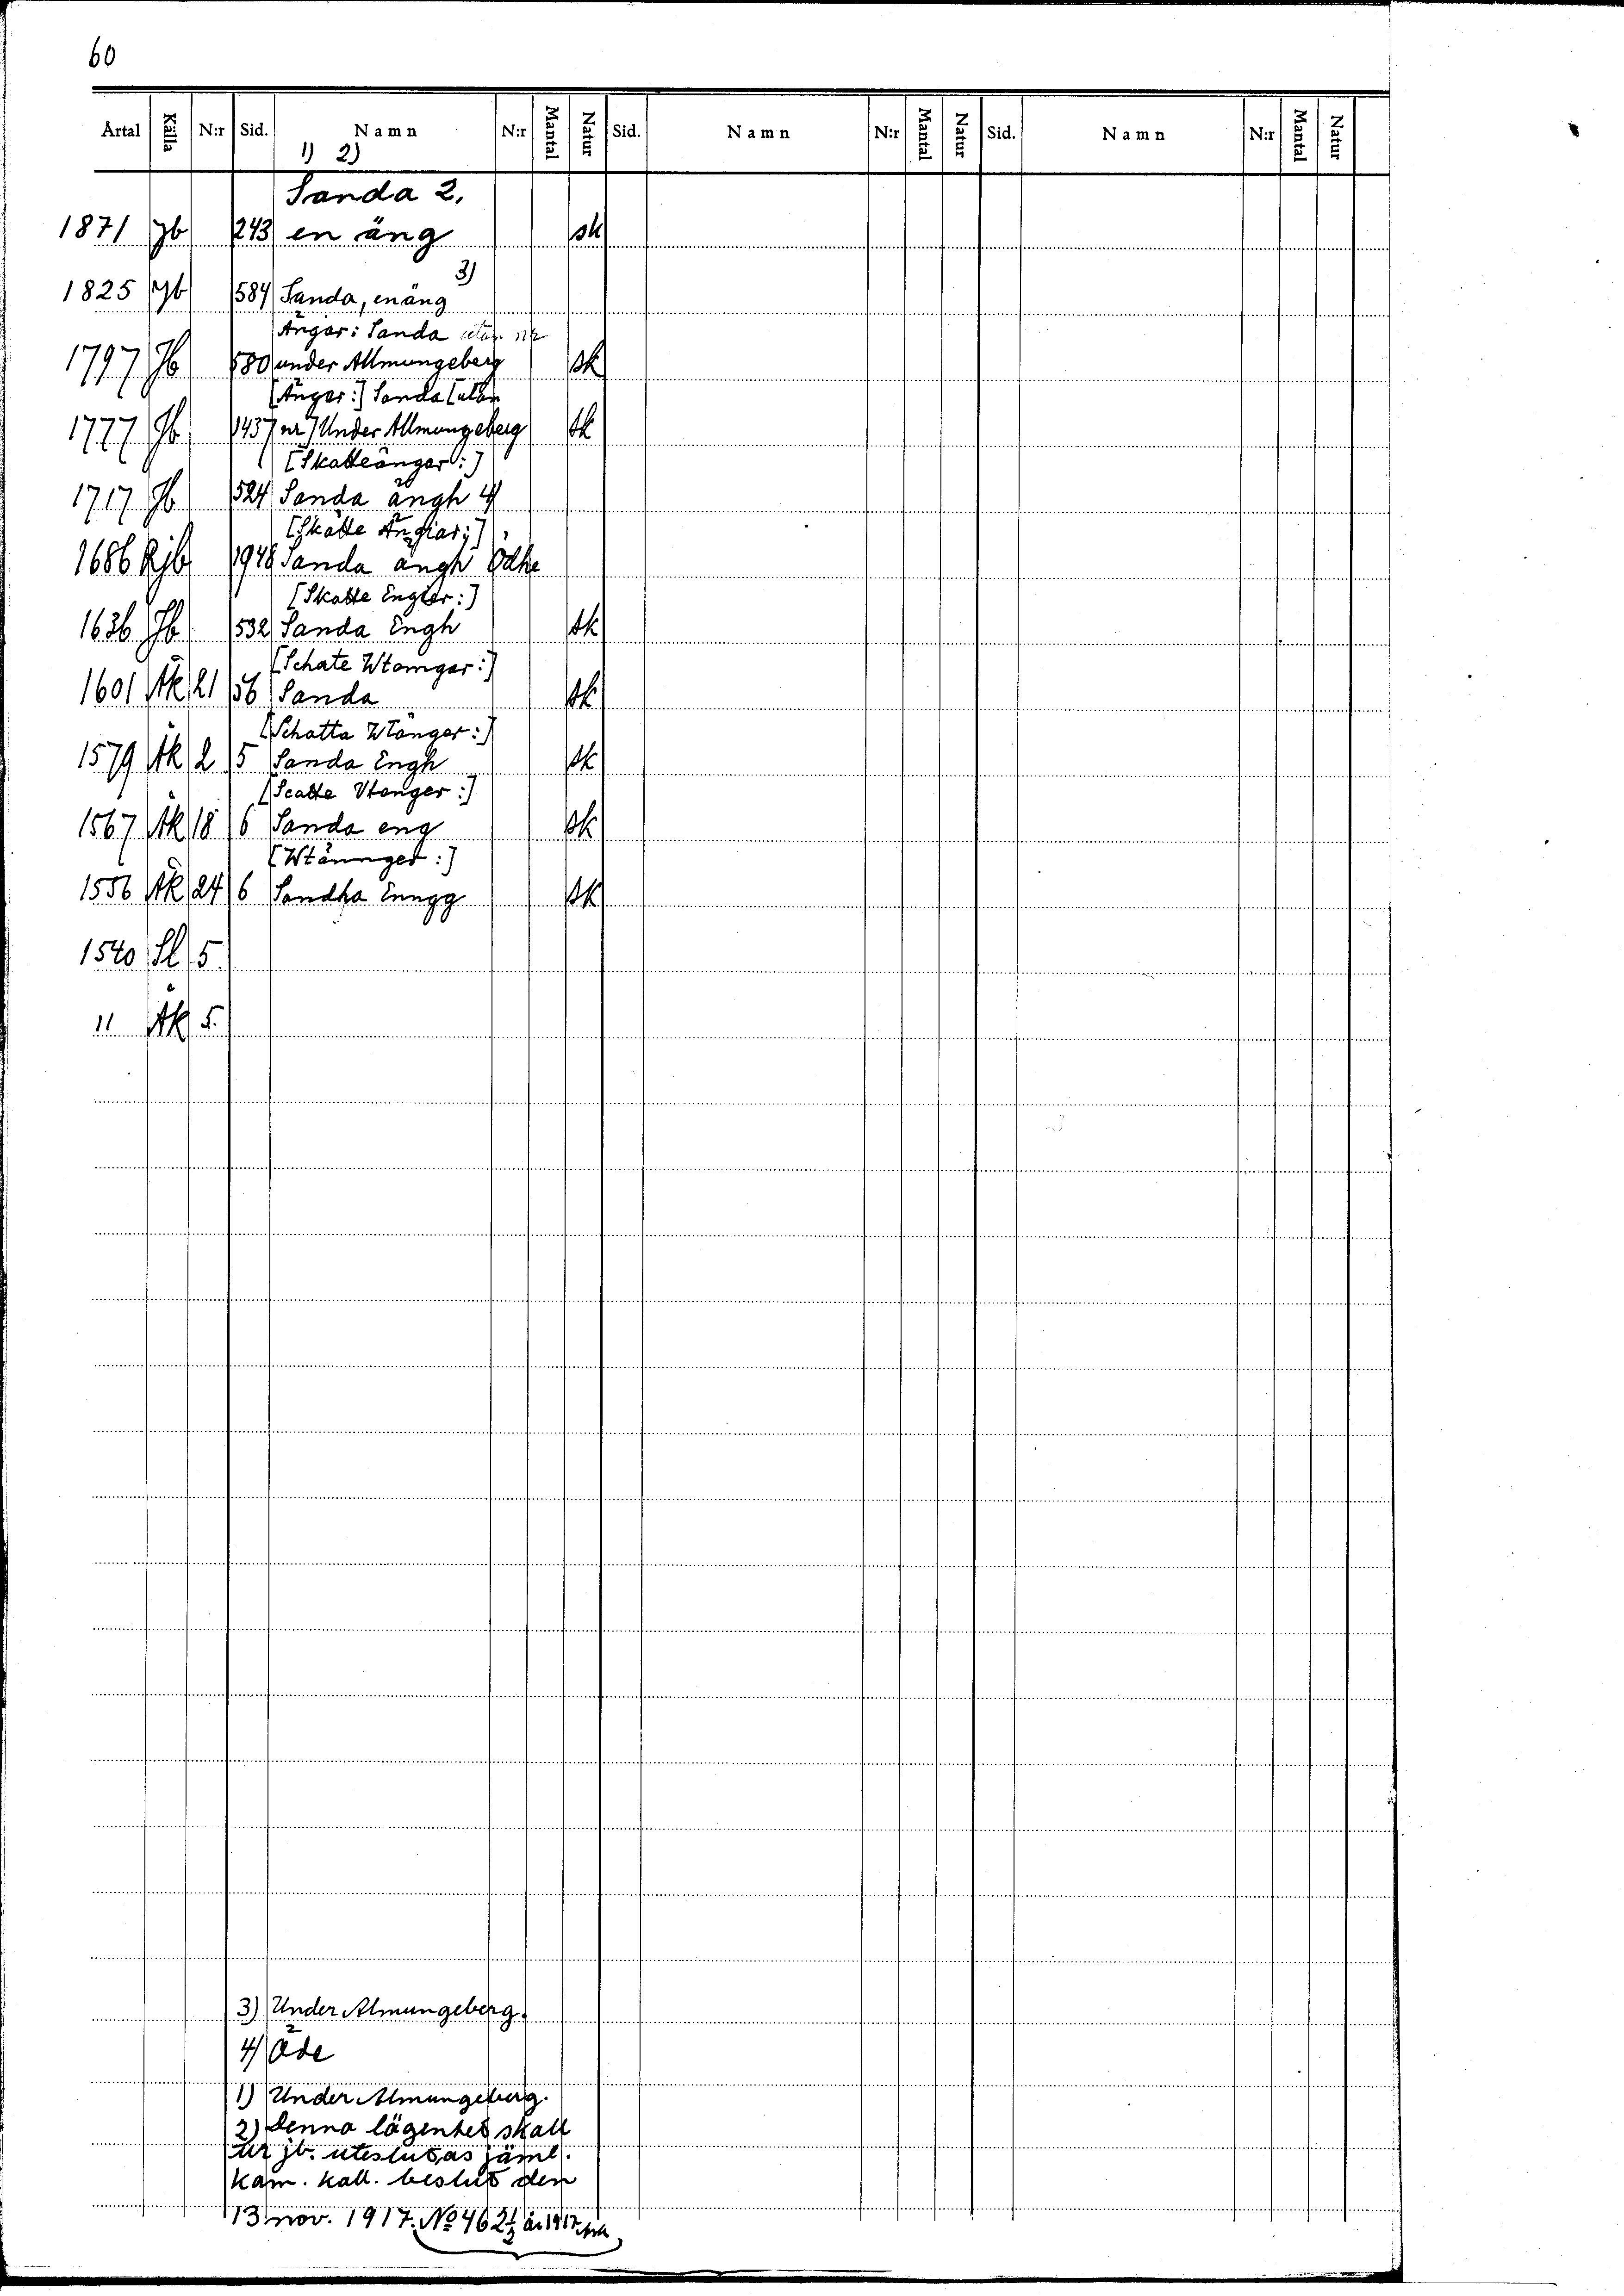 60
Årtal Källa N:r Sid. Namn N:r Mantal Natur Sid. Namn N:r Mantal Natur Sid. Namn N:r Mantal Natur
1) 2)
Sanda 2.
1871 Jb 243 en äng sk
3)
1825 Jb 584 Sanda, en äng
Ängar: Sanda utan nr
1797 Jb 580 under Allmungeberg sk
[Ängar:] Sanda [utan
1777 Jb 1437 nr] Under Allmungeberg sk
[Skatteängar:]
1717 Jb 524 Sanda ängh 4)
[Skatte Ängiar:]
1686 Rjb 1948 Sanda ängh Ödhe
[Skatte Engier:]
1636 Jb 532 Sanda Engh sk
[Schate Wtomgar:]
1601 Åk 21 56 Sanda sk
[Schatta Wtänger:]
1579 Åk 2 5 Sanda Engh sk
[Scatte Vtenger:]
1567 Åk 18 6 Sanda eng sk
[Wtännger:]
1556 Åk 24 6 Sandha Enngg sk
1540 Sl 5
11 Åk 5
3) Under Almungeberg.
4) Öde
1) Under Almungeberg.
2) Denna lägenhet skall
ur jb. uteslutas jäml.
kam. koll. beslut den
13 nov. 1917. No 462 1/2 år 1917